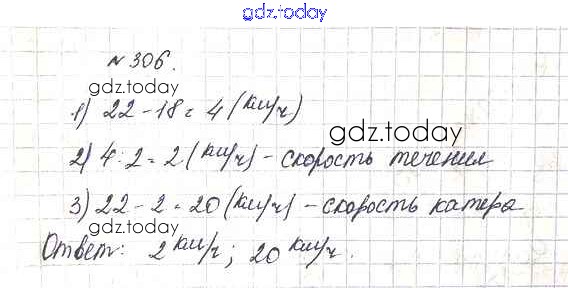 gdz.today
№ 306.
gdz.today
1) 22 - 18 = 4 (км/ч)
gdz.today
2) 4 : 2 = 2 (км/ч) - скорость течения
3) 22 - 2 = 20 (км/ч) - скорость катера
Ответ: 2 км/ч; 20 км/ч.
gdz.today